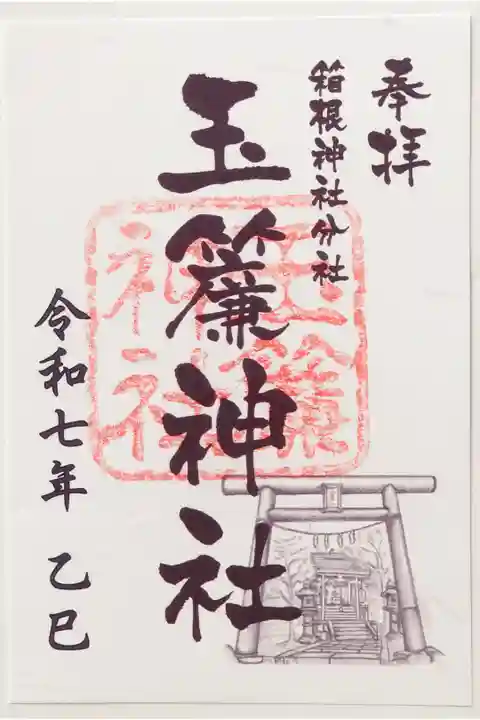 奉拝
箱根神社分社
玉簾神社
令和七年 乙巳
玉簾
神社